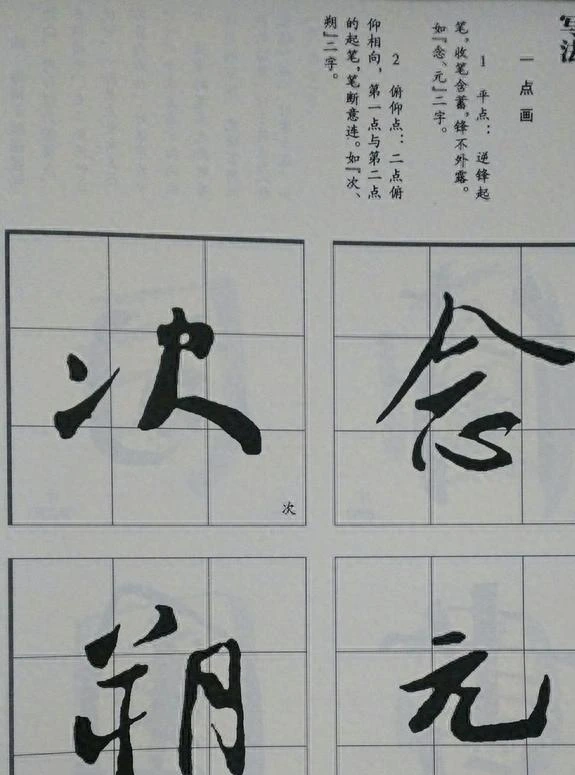 写法
一 点 画
1 平点：逆锋起
笔，收笔含蓄，锋不外露。
如『念、元』二字。
2 俯仰点：二点俯
仰相向，第一点与第二点
的起笔，笔断意连。如『次、
朔』二字。
念
次
次
元
朔